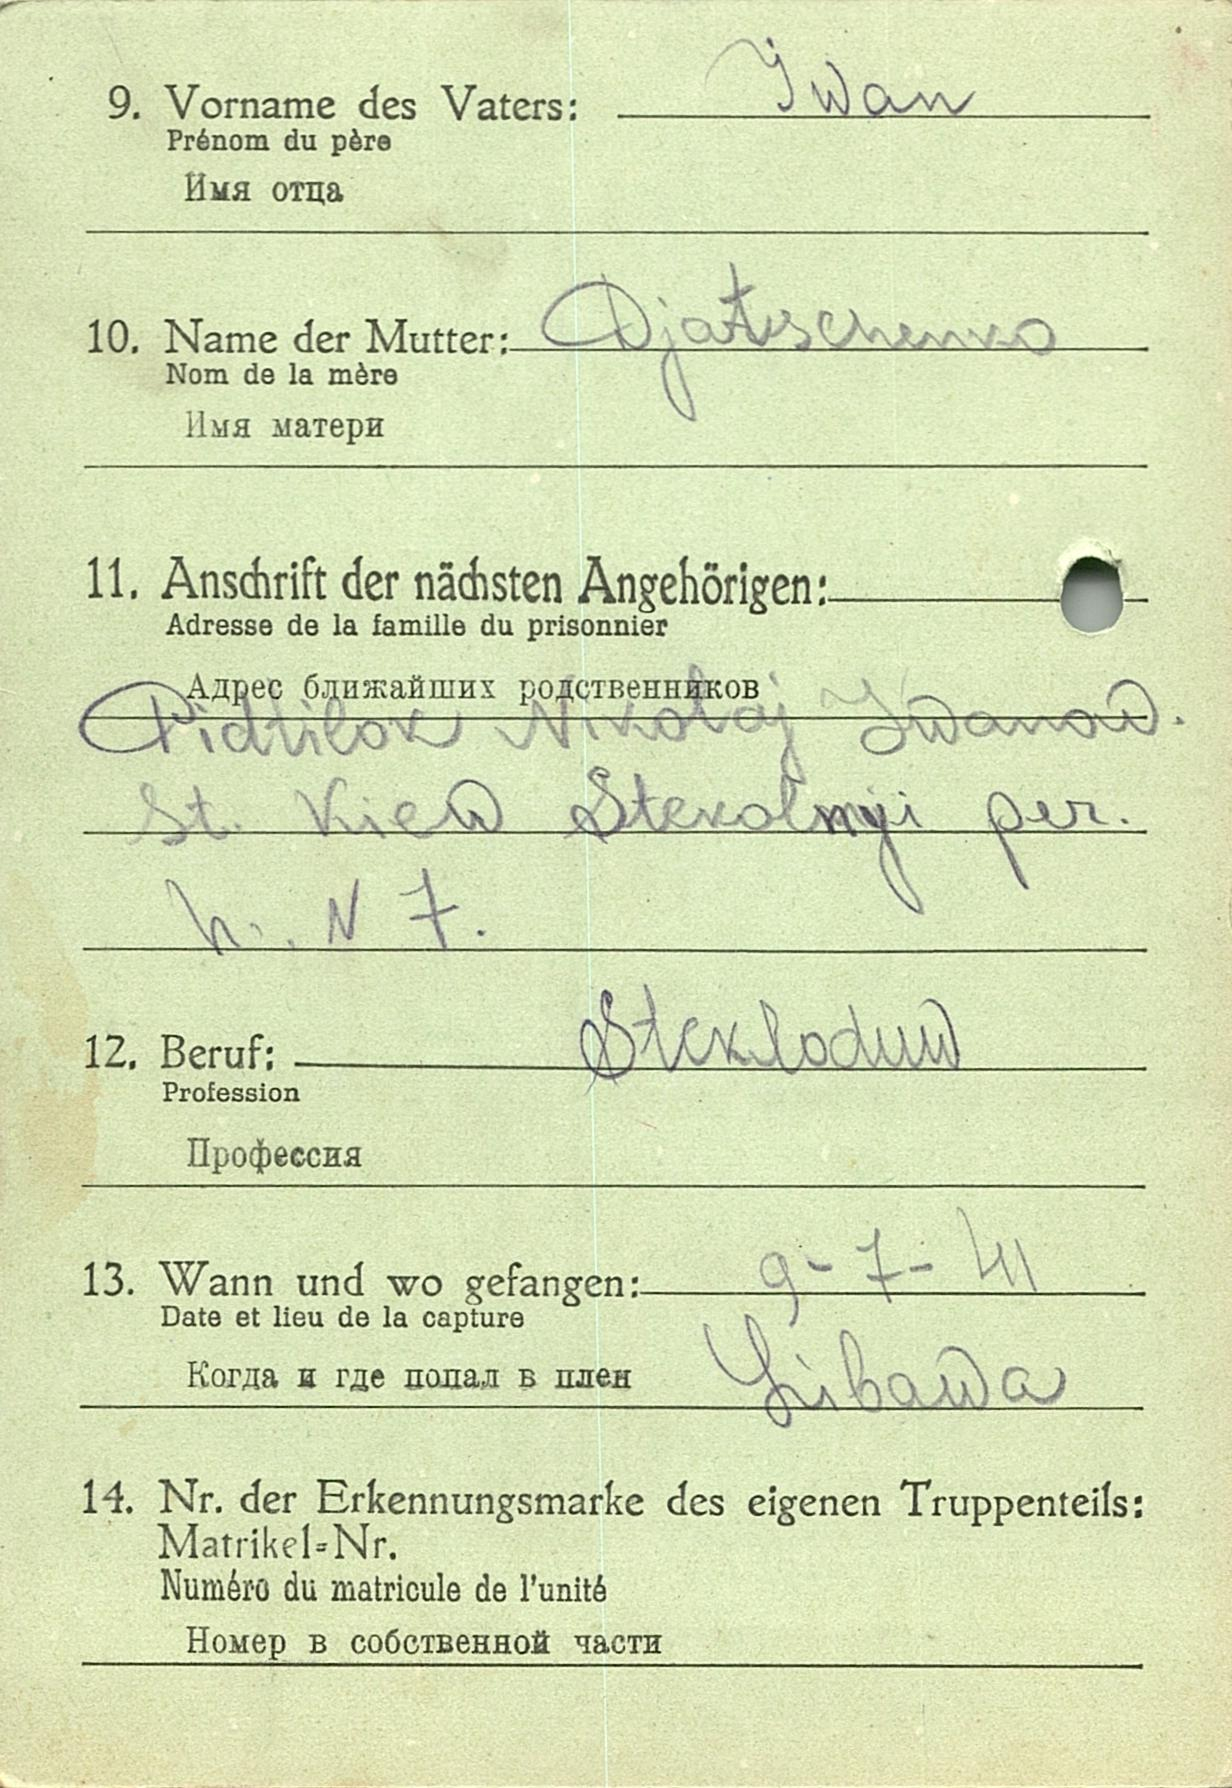 9. Vorname des Vaters: Iwan
Prénom du père
Имя отца
10. Name der Mutter: Djatschenko
Nom de la mère
Имя матери
11. Anschrift der nächsten Angehörigen:
Adresse de la famille du prisonnier
Адрес ближайших родственников
Nikolaj Iwanow.
St. Kiew Stekolnyi per.
h. N 7.
12. Beruf: Stekloduw
Profession
Профессия
13. Wann und wo gefangen: 9-7-41
Date et lieu de la capture
Когда и где попал в плен Libawa
14. Nr. der Erkennungsmarke des eigenen Truppenteils:
Matrikel=Nr.
Numéro du matricule de l'unité
Номер в собственной части